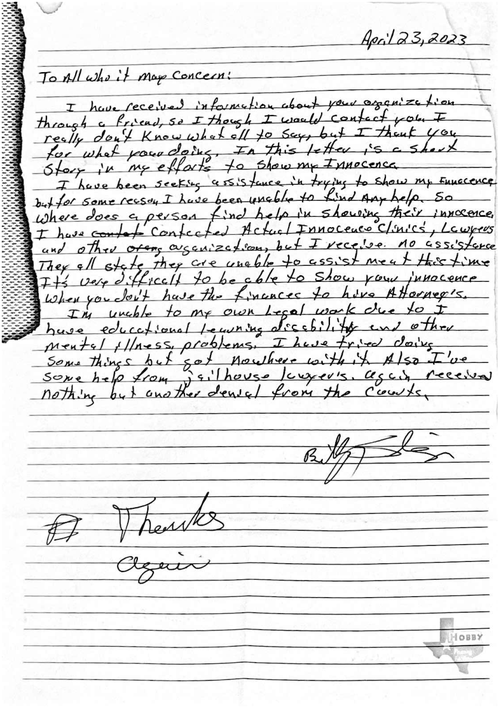 April 23, 2023
To All who it may Concern:
I have received information about your organization
through a friend, so I though I would contact you. I
really don't Know what all to say, but I thank you
for what your doing. In this letter is a short
Story in my efforts to show my Innocence.
I have been seeking assistance in trying to show my Innocence
but for some reason I have been unable to find Any help. So
where does a person find help in showing their innocence
I have Contacted Actual Innocence Clinics, Lawyers
and other organization, but I receive no assistance
They all state they are unable to assist me at this time
It's very difficult to be able to show your innocence
when you don't have the finances to hire Attorney's.
I'm unable to my own legal work due to I
have educational learning disability and other
mental illness, problems. I have tried doing
some things but got nowhere with it. Also I've
some help from jailhouse lawyers. again received
nothing but another denial from the Courts.
Billy
Thanks
again
HOBBY